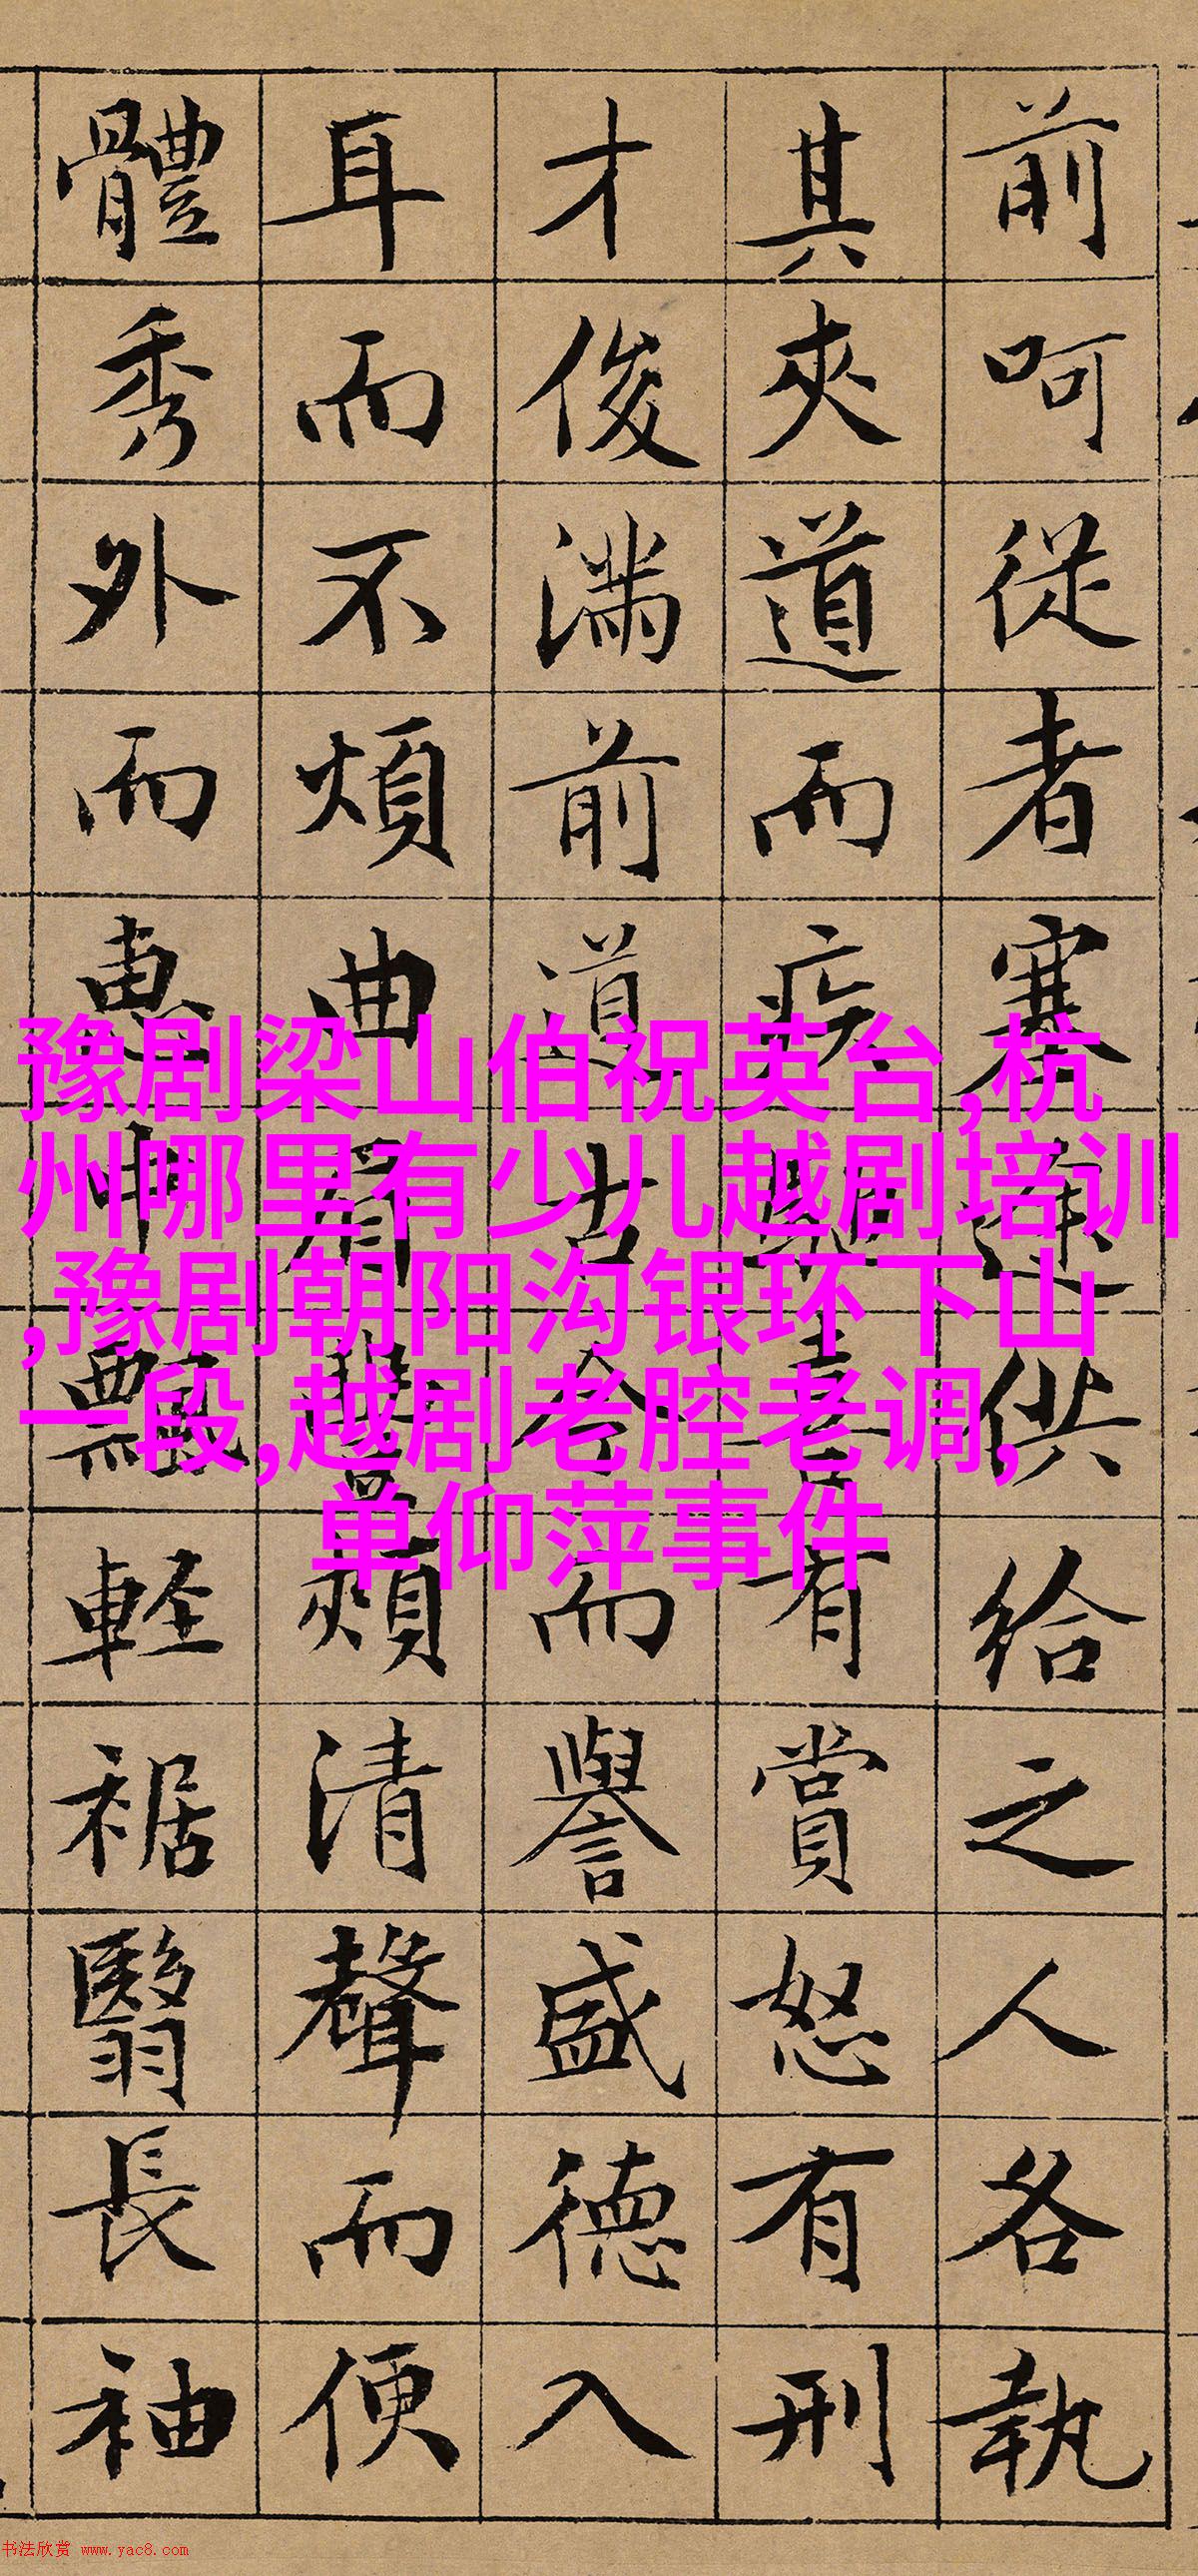 前呵從者塞途供給之人各執
其夾道而疾馳喜有賞怒有刑
才俊滿前道古今而譽盛德入
耳而不煩曲眉豐頰清聲而便
體秀外而惠中飄輕裾翳長袖
豫剧梁山伯祝英台,杭
州哪里有少儿越剧培训
,豫剧朝阳沟银环下山
一段,越剧老腔老调,
单仰萍事件
书法欣赏 www.yac8.com